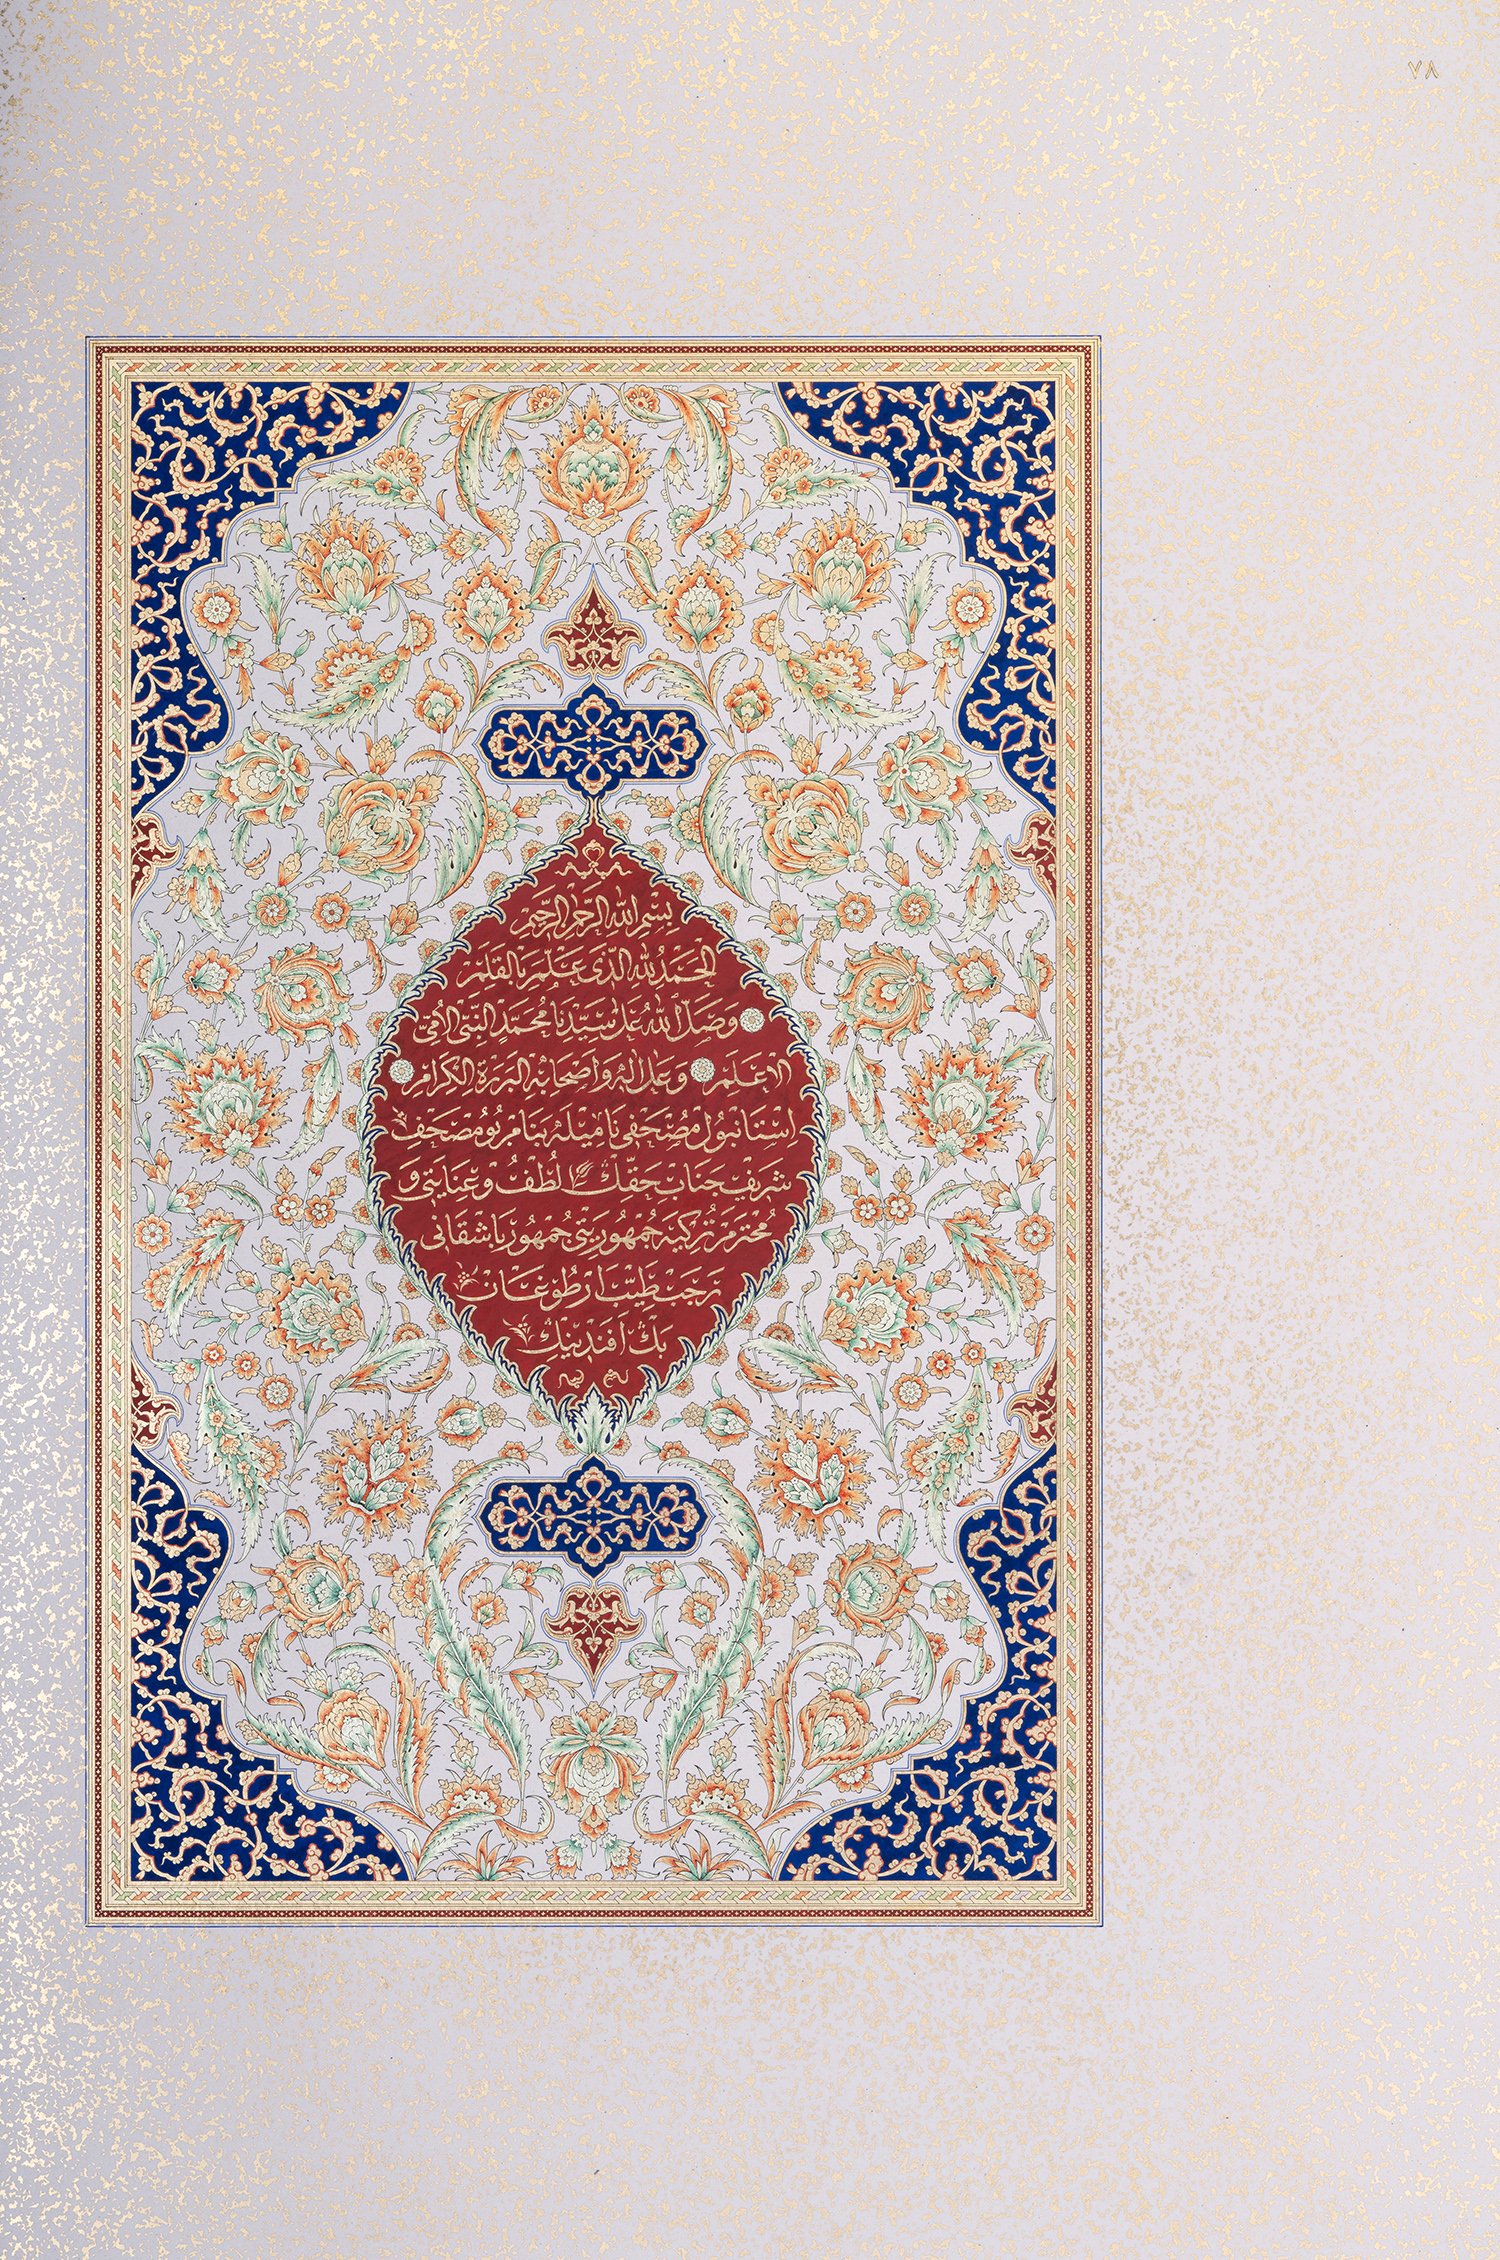 ٧٨
بِسْمِ اللّٰهِ الرَّحْمٰنِ الرَّحِيمِ
اَلْحَمْدُ لِلّٰهِ الَّذٖى عَلَّمَ بِالْقَلَمِ
وَصَلَّى اللّٰهُ عَلٰى سَيِّدِنَا مُحَمَّدٍ النَّبِىِّ الْاُمِّىِّ
الْاَعْلَمِ وَعَلٰى اٰلِهٖ وَاَصْحَابِهِ الْبَرَرَةِ الْكِرَامِ
اِسْتَانْبُولْ مُصْحَفِى نَامِيلَه بِنَامْ بُو مُصْحَفِ
شَرِيفْ جَنَابْ حَقِّكْ لُطْفُ وْ عِنَايَتِى وَ
مُحْتَرَمْ تُرْكِيَه جُمْهُورِيَتِى جُمْهُورْبَاشْقَانِى
رَجَبْ طَيِّبْ اَرْطُوغَانْ
بَكْ اَفَنْدِينِكْ